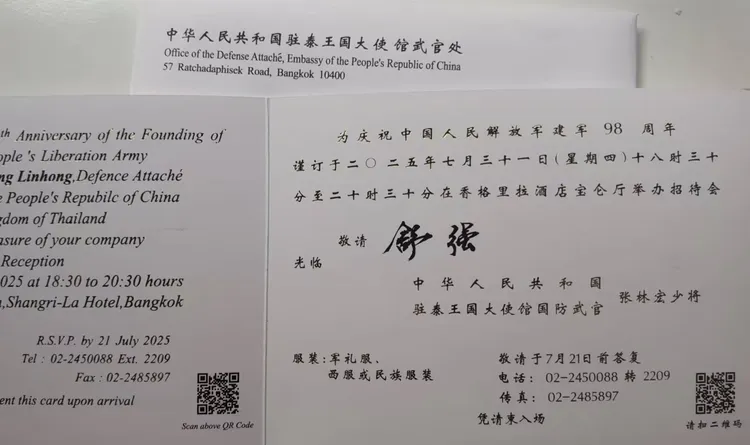 中华人民共和国驻泰王国大使馆武官处
Office of the Defense Attaché, Embassy of the People's Republic of China
57 Ratchadaphisek Road, Bangkok 10400
th Anniversary of the Founding of
ople's Liberation Army
ng Linhong,Defence Attaché
e People's Repubilc of China
ngdom of Thailand
asure of your company
Reception
025 at 18:30 to 20:30 hours
,Shangri-La Hotel,Bangkok
R.S.V.P. by 21 July 2025
Tel : 02-2450088 Ext. 2209
Fax : 02-2485897
ent this card upon arrival
Scan above QR Code
为庆祝中国人民解放军建军 98 周年
谨订于二〇二五年七月三十一日(星期四)十八时三十
分至二十时三十分在香格里拉酒店宝仑厅举办招待会
敬请 舒强
光临
中华人民共和国
驻泰王国大使馆国防武官 张林宏少将
服装:军礼服、
西服或民族服装
敬请于7月21日前答复
电话: 02-2450088 转 2209
传真: 02-2485897
凭请柬入场
请扫二维码